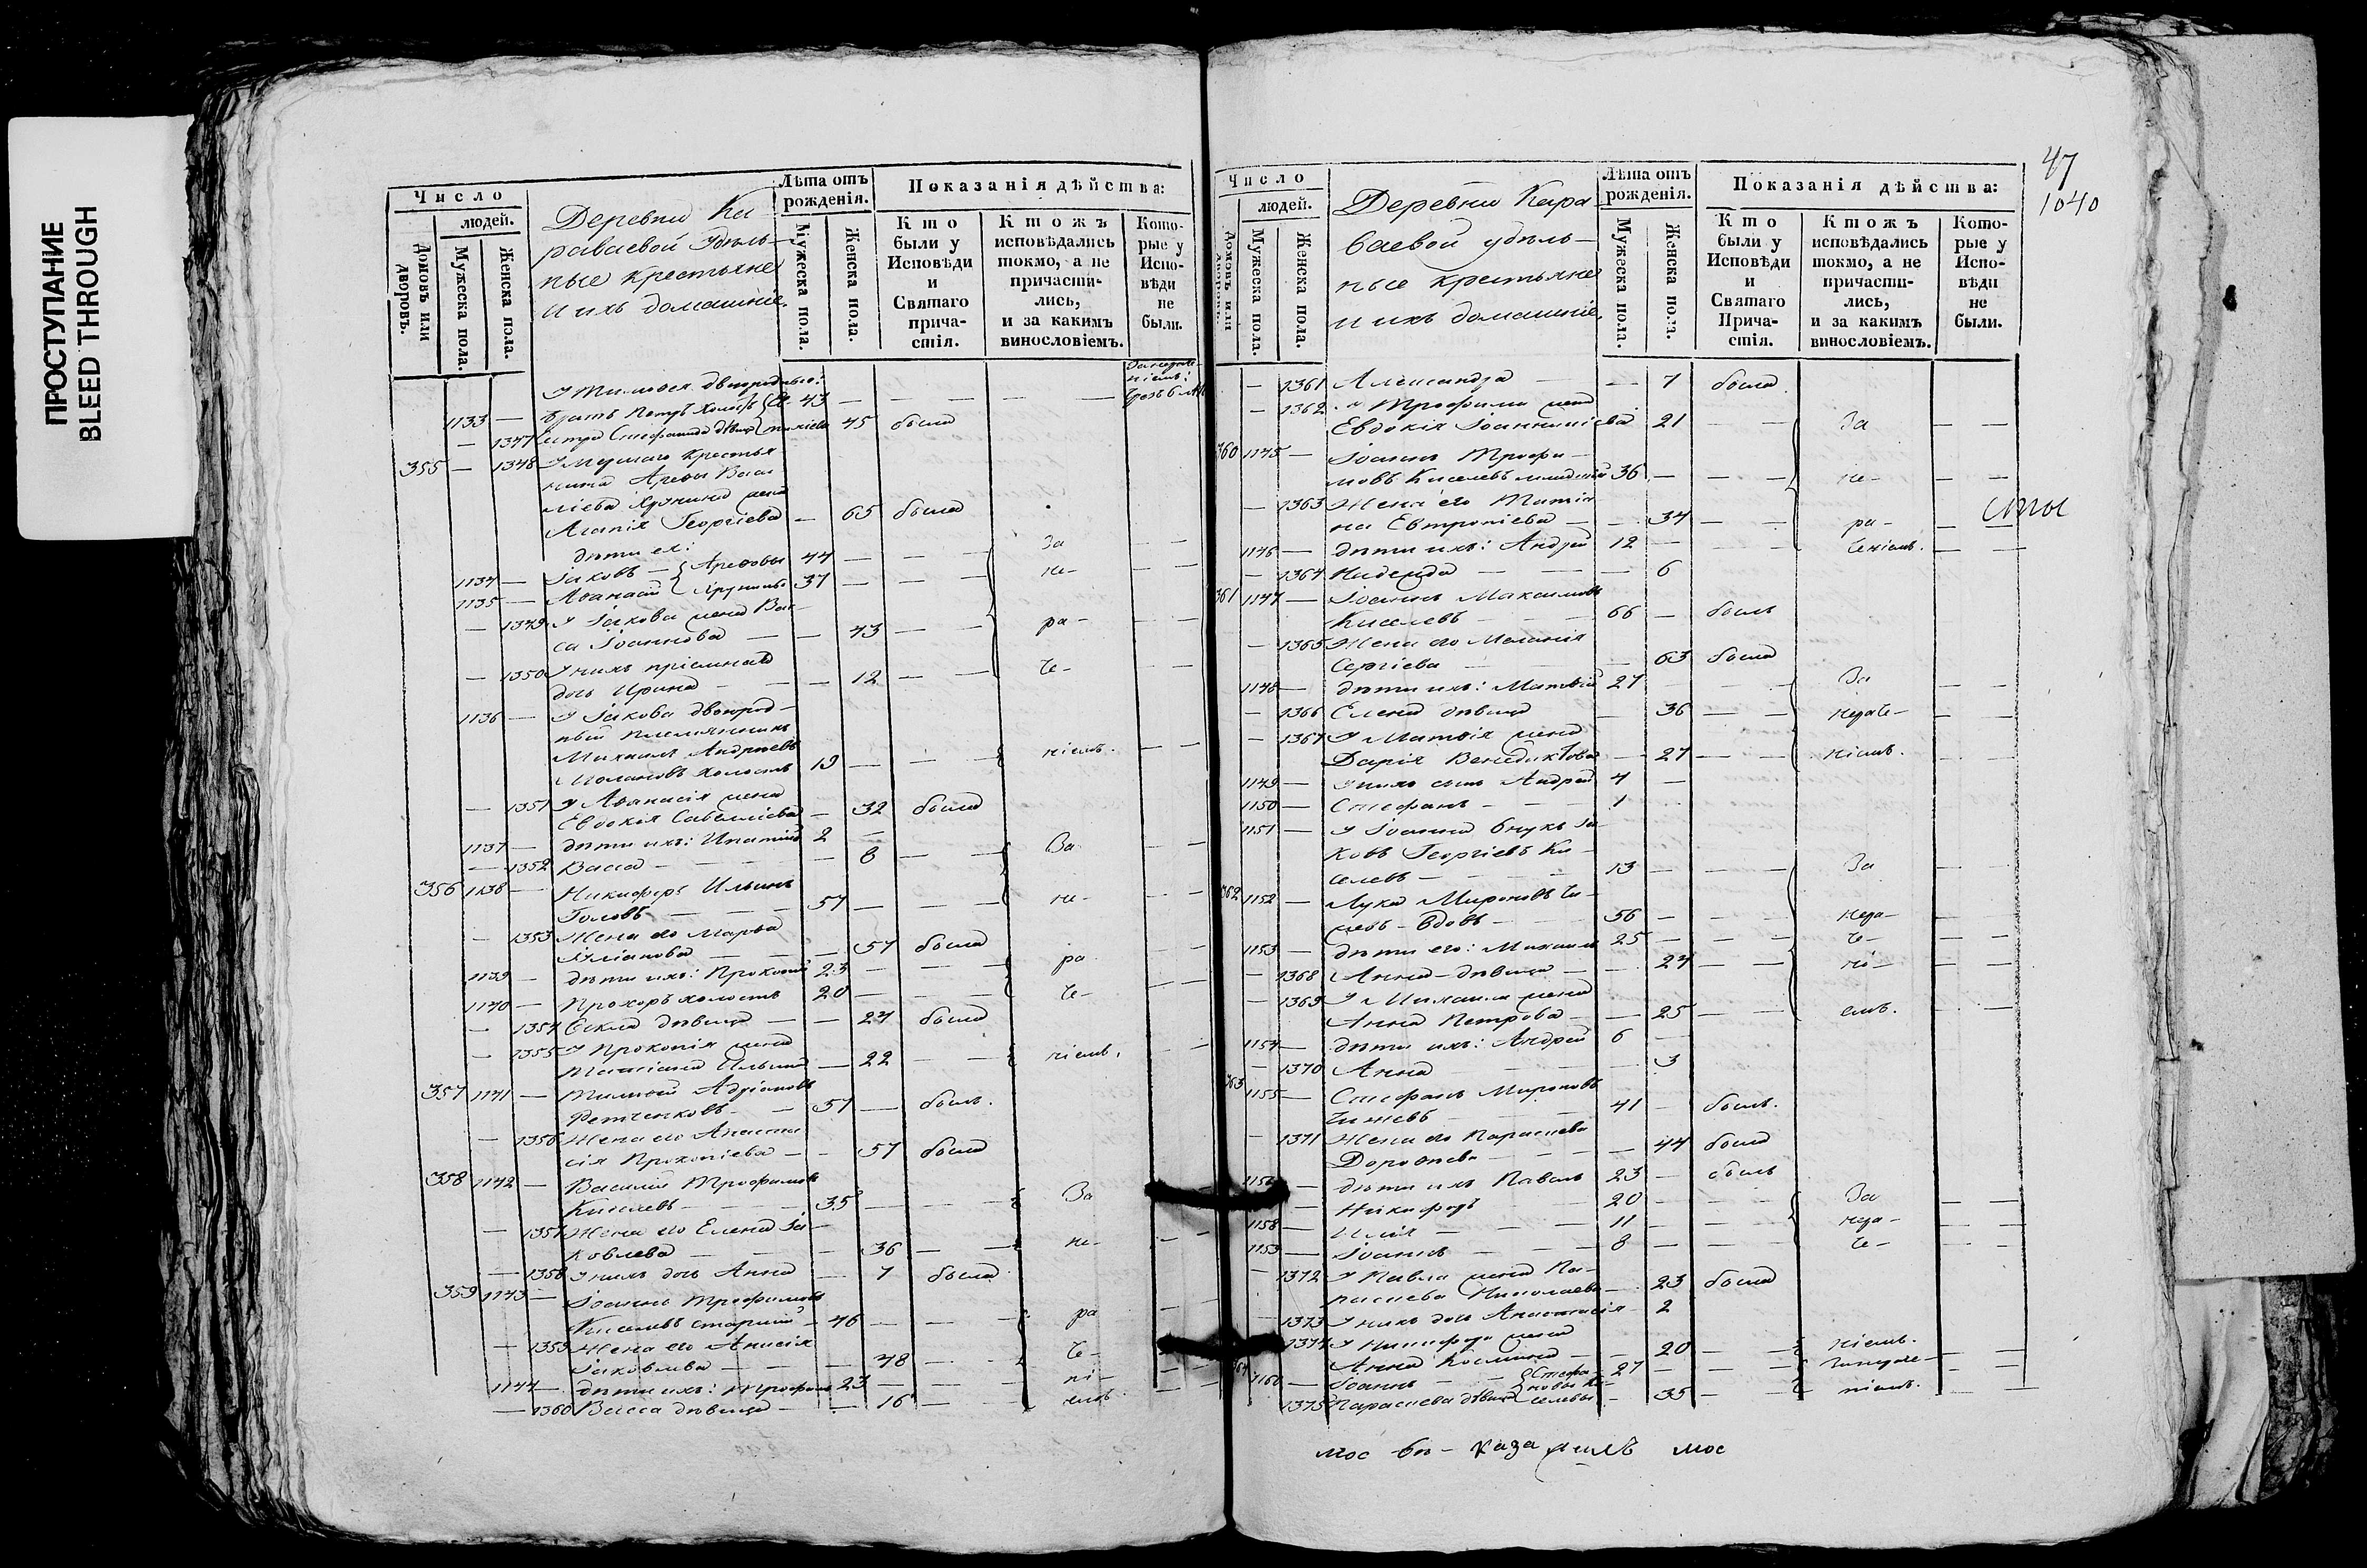 ПРОСТУПАНИЕ
BLEED THROUGH
Число
людей.
Домовъ или дворовъ.
Мужеска пола.
Женска пола.
Деревни Ка
раваевой удѣль-
ные крестьяне
и ихъ домашніе
Лѣта отъ рожденія.
Мужеска пола.
Женска пола.
Показанія дѣйства:
Кто были у Исповѣди и Святаго причастія.
Ктожъ исповѣдались токмо, а не причастились, и за какимъ винословіемъ.
Которые у Исповѣди не были.
1133 — братъ Петръ холостъ 43 — — — —
— 1347 Стефанида дѣвица 45 была
355 — 1348
Агапія Георгіева — 65 была
дѣти ея:
1134 — Іаковъ — Арефовы 44 — — — За
1135 — Аѳанасій 37 — — — не-
— 1349 У Іакова жена Вас-
са Іоаннова — — 43 — — ра-
— 1350 У нихъ пріемная
дочь Ирина — — 12 — — че-
1136 — У Іакова двоюрод-
ный племянникъ
Михаилъ Андреевъ
холостъ 19 — — — ніемъ.
— 1351 У Аѳанасія жена
Евдокія Савеліева — 32 была
1137 — дѣти ихъ: Ипатій 2 —
— 1352 Васса — — 8 — — За
356 1138 — Никифоръ Ильинъ
Головъ — 57 — — — не-
— 1353 Жена его Марѳа
— 57 была
1139 — дѣти ихъ: Прокопій 23 — — — ра
1140 — Прохоръ холостъ 20 — — — че-
— 1354 Ѳекла дѣвица — — 24 была
— 1355 У Прокопія жена
Татіана Ильина — 22 — — ніемъ.
357 1141 — Тимоѳей Адріановъ
— 57 — былъ.
— 1356 Жена его Анаста
сія Прокопіева — 57 была
358 1142 — Василій Трофимовъ
Киселевъ — 35 — — — За
— 1357 Жена его Елена Іа-
ковлева — — 36 — — не-
— 1358 У нихъ дочь Анна — 7 была
359 1143 — Іоаннъ Трофимовъ
Киселевъ старшій — 46 — — — ра
— 1359 Жена его Анисія
Іаковлева — — 48 — — че-
1144 — дѣти ихъ: Трофимъ 23 — — ні-
— 1360 Васса дѣвица — — 16 — — емъ
47
1040
Число
людей.
Домовъ или дворовъ.
Мужеска пола.
Женска пола.
Деревни Кара
ваевой удѣль-
ные крестьяне
и ихъ домашніе
Лѣта отъ рожденія.
Мужеска пола.
Женска пола.
Показанія дѣйства:
Кто были у Исповѣди и Святаго Причастія.
Ктожъ исповѣдались токмо, а не причастились, и за какимъ винословіемъ.
Которые у Исповѣди не были.
— 1361 Александра — — 7 была
— 1362 У Трофима жена
Евдокія 21 — — За — —
360 1145 — Іоаннъ Трофи-
мовъ Киселевъ младшій 36 — — — не- — —
— 1363 Жена его Татіа
на Евтропіева — — 34 — — ра- —
1146 — дѣти ихъ: Андрей 12 — — — ченіемъ. — —
— 1364 Надежда — — 6
361 1147 — Іоаннъ Максимовъ
Киселевъ — 66 — былъ
— 1365 Жена его Меланія
Сергіева — — 63 была
1148 — дѣти ихъ: Матвей 27 — — — За — —
— 1366 Елена дѣвица — 36 — — нераче- — —
— 1367 У Матвея жена
Дарія Венедиктова — 27 — — ніемъ. — —
1149 — У нихъ сынъ Андрей 4 —
1150 — Стефанъ — 1
1151 — У Іоанна внукъ Іа-
ковъ Георгіевъ Ки-
селевъ — 13 — — — За — —
362 1152 — Лука Мироновъ Чи-
жевъ — вдовъ — 56 — — — нера- —
1153 — дѣти его: Михаилъ 25 — — — че- — —
— 1368 Анна — дѣвица — — 24 — — ні- — —
— 1369 У Михаила жена
Анна Петрова — — 25 — — емъ. — —
1154 — дѣти ихъ: Андрей 6 —
— 1370 Анна — — 3
363 1155 — Стефанъ Мироновъ
Чижевъ — 41 — былъ.
— 1371 Жена его Параскева
Дороѳеева — — 44 была
— дѣти ихъ Павелъ 23 — былъ
— Никифоръ 20 — — — За — —
1158 — Илія — 11 — — — нера- — —
1159 — Іоаннъ — 8 — — — че- — —
— 1372 У Павла жена Па-
раскева Николаева — 23 была
— 1373 У нихъ дочь Анастасія — 2
1374 У Никифора жена
Анна — — 20 — — ніемъ. — —
1160 — Іоаннъ — 27 — — — — —
1375 Параскева дѣвица — 35 — — ніемъ. — —